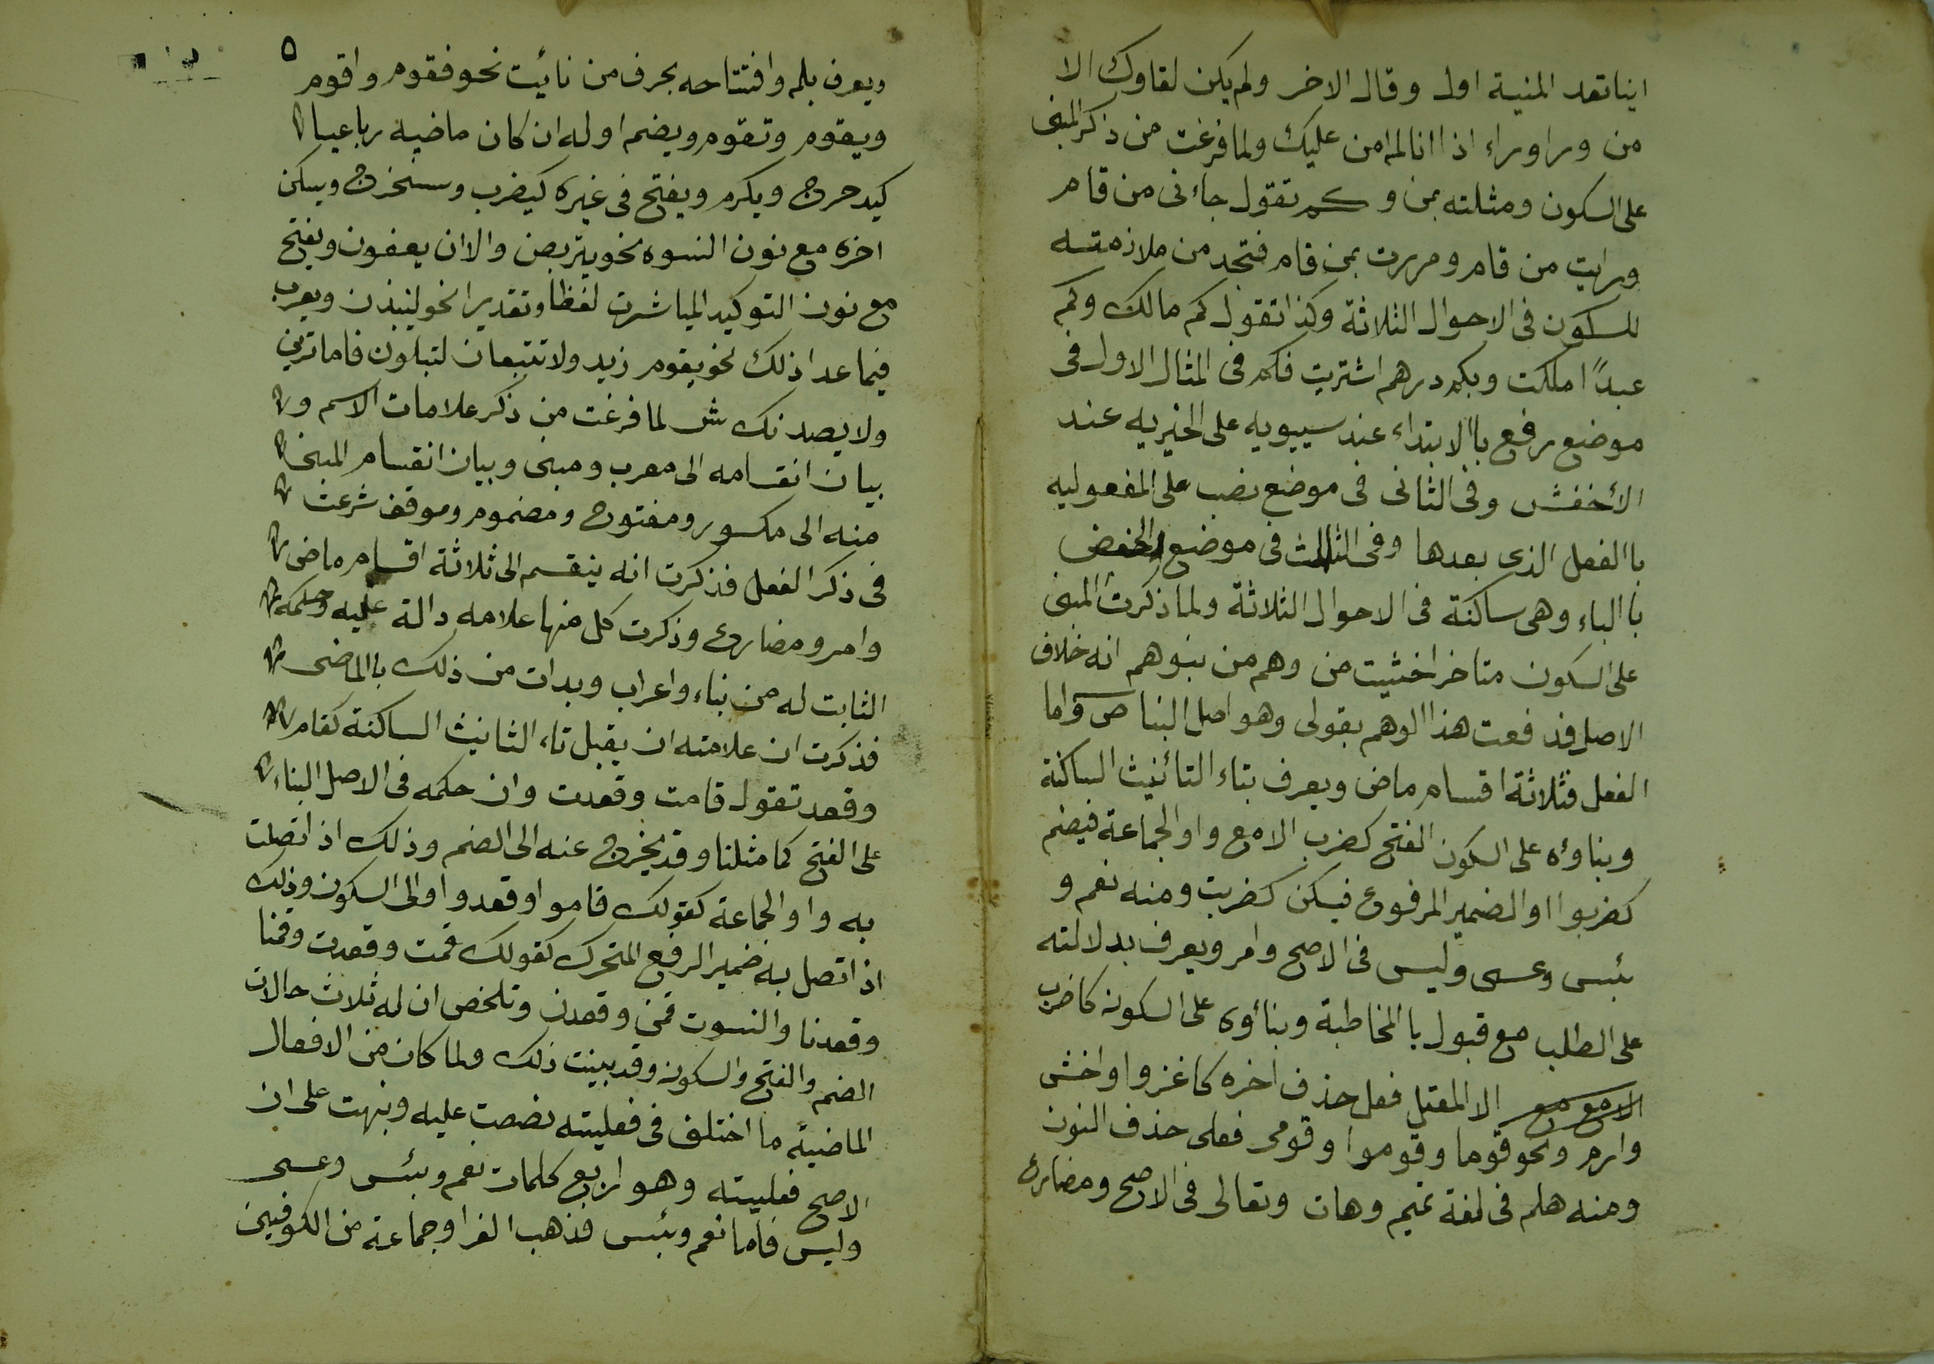 اينا تعد المنية اول وقال الاخر ولم يكن لقاوك الا
من ورا وراء اذا انا لم امن عليك ولما فرغت من ذكر المبنى
على السكون ومثلته بمن وكم تقول جاءنى من قام
ورايت من قام ومررت بمن قام فتجد من ملازمته
للسكون فى الاحوال الثلاثة وكذا تقول كم مالك وكم
عبدًا ملكت وبكم درهم اشتريت فكم فى المثال الاول فى
موضع رفع باالابتداء عند سيبويه على الخبريه عند
الأخفش وفى الثانى فى موضع نصب على المفعوليه
باالفعل الذى بعدها وفى الثالث فى موضع الخفض
باالباء وهى ساكنة فى الاحوال الثلاثة ولما ذكرت المبنى
على السكون متاخرا خشيت من وهم من يتوهم انه خلاف
الاصل فدفعت هذا الوهم بقولى وهو اصل البنا ص واما
الفعل فثلاثة اقسام ماض ويعرف بتاء التائنيث الساكنة
وبناؤه على السكون الفتح كضرب الا مع واو الجماعة فيضم
كضربوا او الضمير المرفوع فيسكن كضربت ومنه نعم و
بئس وعسى وليس فى الاصح وامر ويعرف بدلالته
على الطلب مع قبول يا المخاطبة وبناؤه على السكون كاضرب
الا مع مع الا المعتل فعل حذف اخره كاغزوا واخش
وارم ونحو قوما وقوموا وقومى فعلى حذف النون
ومنه هلم فى لغة تميم وهات وتعالى فى الاصح ومضارع
٥
ويعرف بلم وافتتاحه بحرف من نائيت نحو فقوم واقوم
ويقوم وتقوم ويضم اوله ان كان ماضيه رباعيا
كيدحرج ويكرم ويفتح فى غيره كيضرب وستخرج ويسكن
اخره مع نون النسوه نحو يتربصن والا ان يعفون ويفتح
مع نون التوكيد المباشرت لفظا وتقديرا نحو لينبذن ويعرب
فيما عدا ذلك نحو يقوم زيد ولا تتبعان لتبلون فاما ترين
ولا يصدنك ش لما فرغت من ذكر علامات الاسم و
بيان انقسامه الى معرب ومبنى وبيان انقسام المبنى
منه الى مكسور ومفتوح ومضموم وموقف شرعت
فى ذكر الفعل فذكرت انه ينقسم الى ثلاثة اقسام ماضى
وامر ومضارع وذكرت كل منها علامه دالة عليه وحكمه
الثابت له من بناء واعراب وبدات من ذلك باالماضى
فذكرت ان علامته ان يقبل تاء الثانيث الساكنة كقام
وقعد تقول قامت وقعدت وان حكمه فى الاصل البناء
على الفتح كما مثلنا وقد يخرج عنه الى الضم وذلك اذ اتصلت
به واو الجماعة كقولك قاموا وقعدوا والى السكون وذلك
اذ اتصل به ضمير الرفع المتحرك كقولك قمت وقعدت وقمنا
وقعدنا والنسوت قمن وقعدن وتلخص ان له ثلاث حالات
الضم والفتح والسكون وقد بينت ذلك ولما كان من الافعال
الماضية ما اختلف فى فعليته نصصت عليه ونبهت على ان
الاصح فعليته وهو اربع كلمات نعم وبئس وعسى
وليس فاما نعم وبئس فذهب الفرا وجماعة من الكوفيين